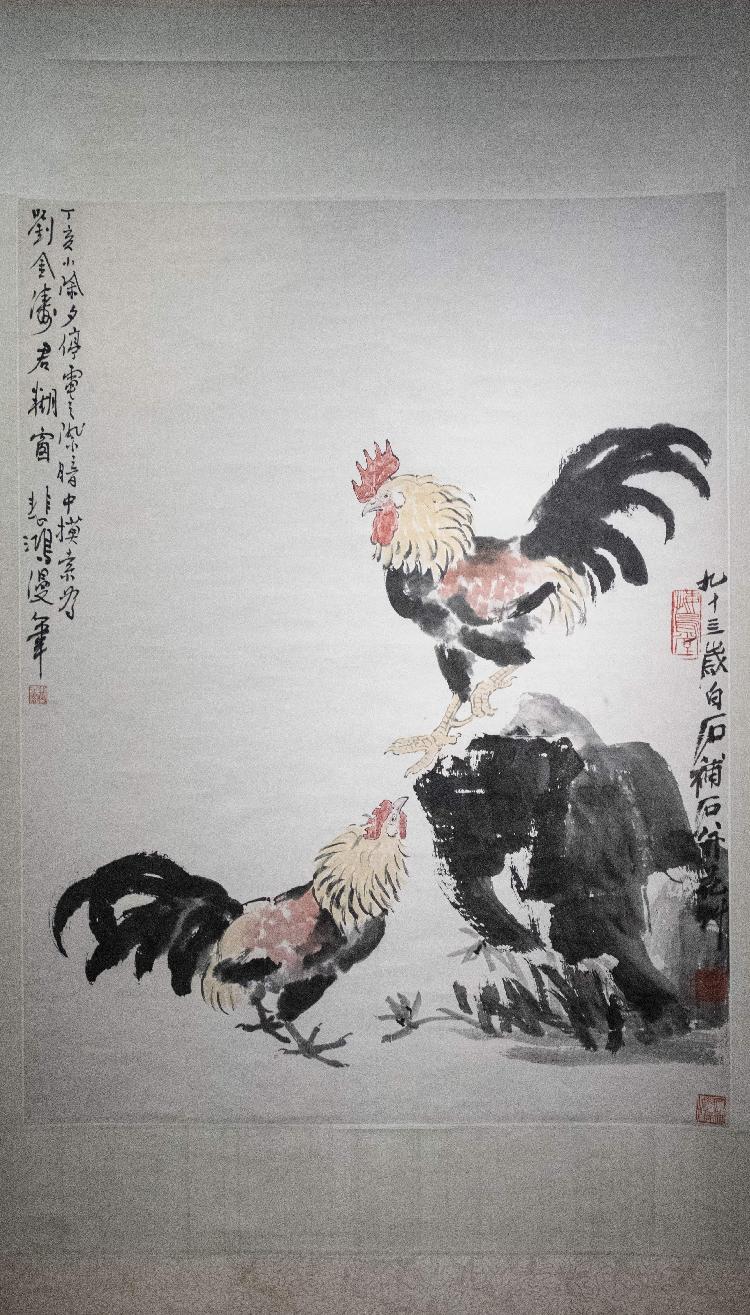 九十三歲白石補石並花草
丁亥小除夕停電之際暗中摸索為
劉金濤君糊窗 悲鴻漫筆